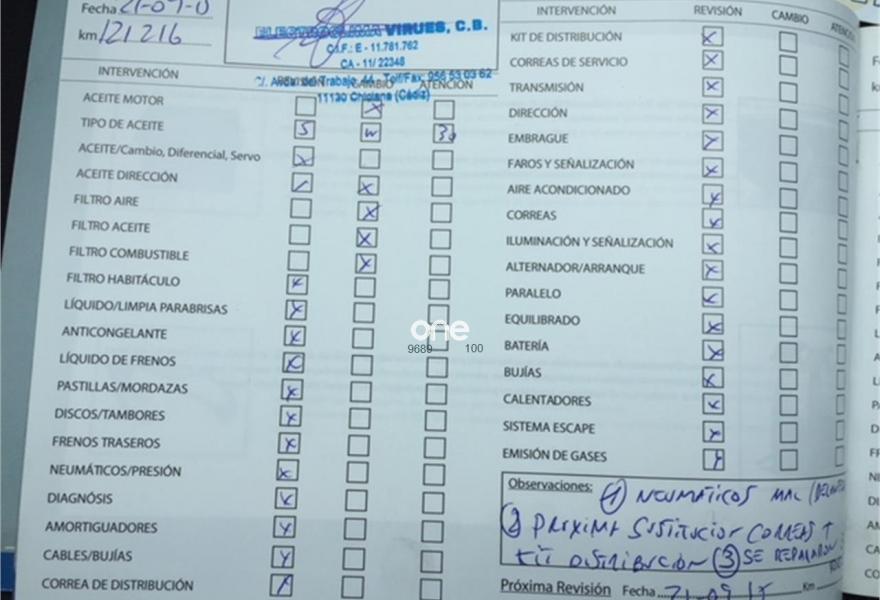 Fecha 21-09-1
km 121216
VIRUES, C.B.
C.I.F.: E - 11.781.762
CA - 11/ 22348
C/. Arida del Trabajo, 44 - Telf/Fax: 956 53 03 62
11130 Chiclana (Cádiz)
INTERVENCIÓN CAMBIO ATENCIÓN
ACEITE MOTOR X
TIPO DE ACEITE 5 W 30
ACEITE/Cambio, Diferencial, Servo X
ACEITE DIRECCIÓN X
FILTRO AIRE X
FILTRO ACEITE X
FILTRO COMBUSTIBLE X
FILTRO HABITÁCULO X
LÍQUIDO/LIMPIA PARABRISAS X
ANTICONGELANTE X
LÍQUIDO DE FRENOS X
PASTILLAS/MORDAZAS X
DISCOS/TAMBORES X
FRENOS TRASEROS X
NEUMÁTICOS/PRESIÓN X
DIAGNÓSIS X
AMORTIGUADORES X
CABLES/BUJÍAS X
CORREA DE DISTRIBUCIÓN X
INTERVENCIÓN REVISIÓN CAMBIO
KIT DE DISTRIBUCIÓN X
CORREAS DE SERVICIO X
TRANSMISIÓN X
DIRECCIÓN X
EMBRAGUE X
FAROS Y SEÑALIZACIÓN X
AIRE ACONDICIONADO X
CORREAS X
ILUMINACIÓN Y SEÑALIZACIÓN X
ALTERNADOR/ARRANQUE X
PARALELO X
EQUILIBRADO X
BATERÍA X
BUJÍAS X
CALENTADORES X
SISTEMA ESCAPE X
EMISIÓN DE GASES X
Observaciones: 1 NEUMÁTICOS MAL
2 PROXIMA SUSTITUCION CORREAS Y
KIT DISTRIBUCION 3 SE REPARARON
Próxima Revisión Fecha 21-09-1 Km
one
9689 100